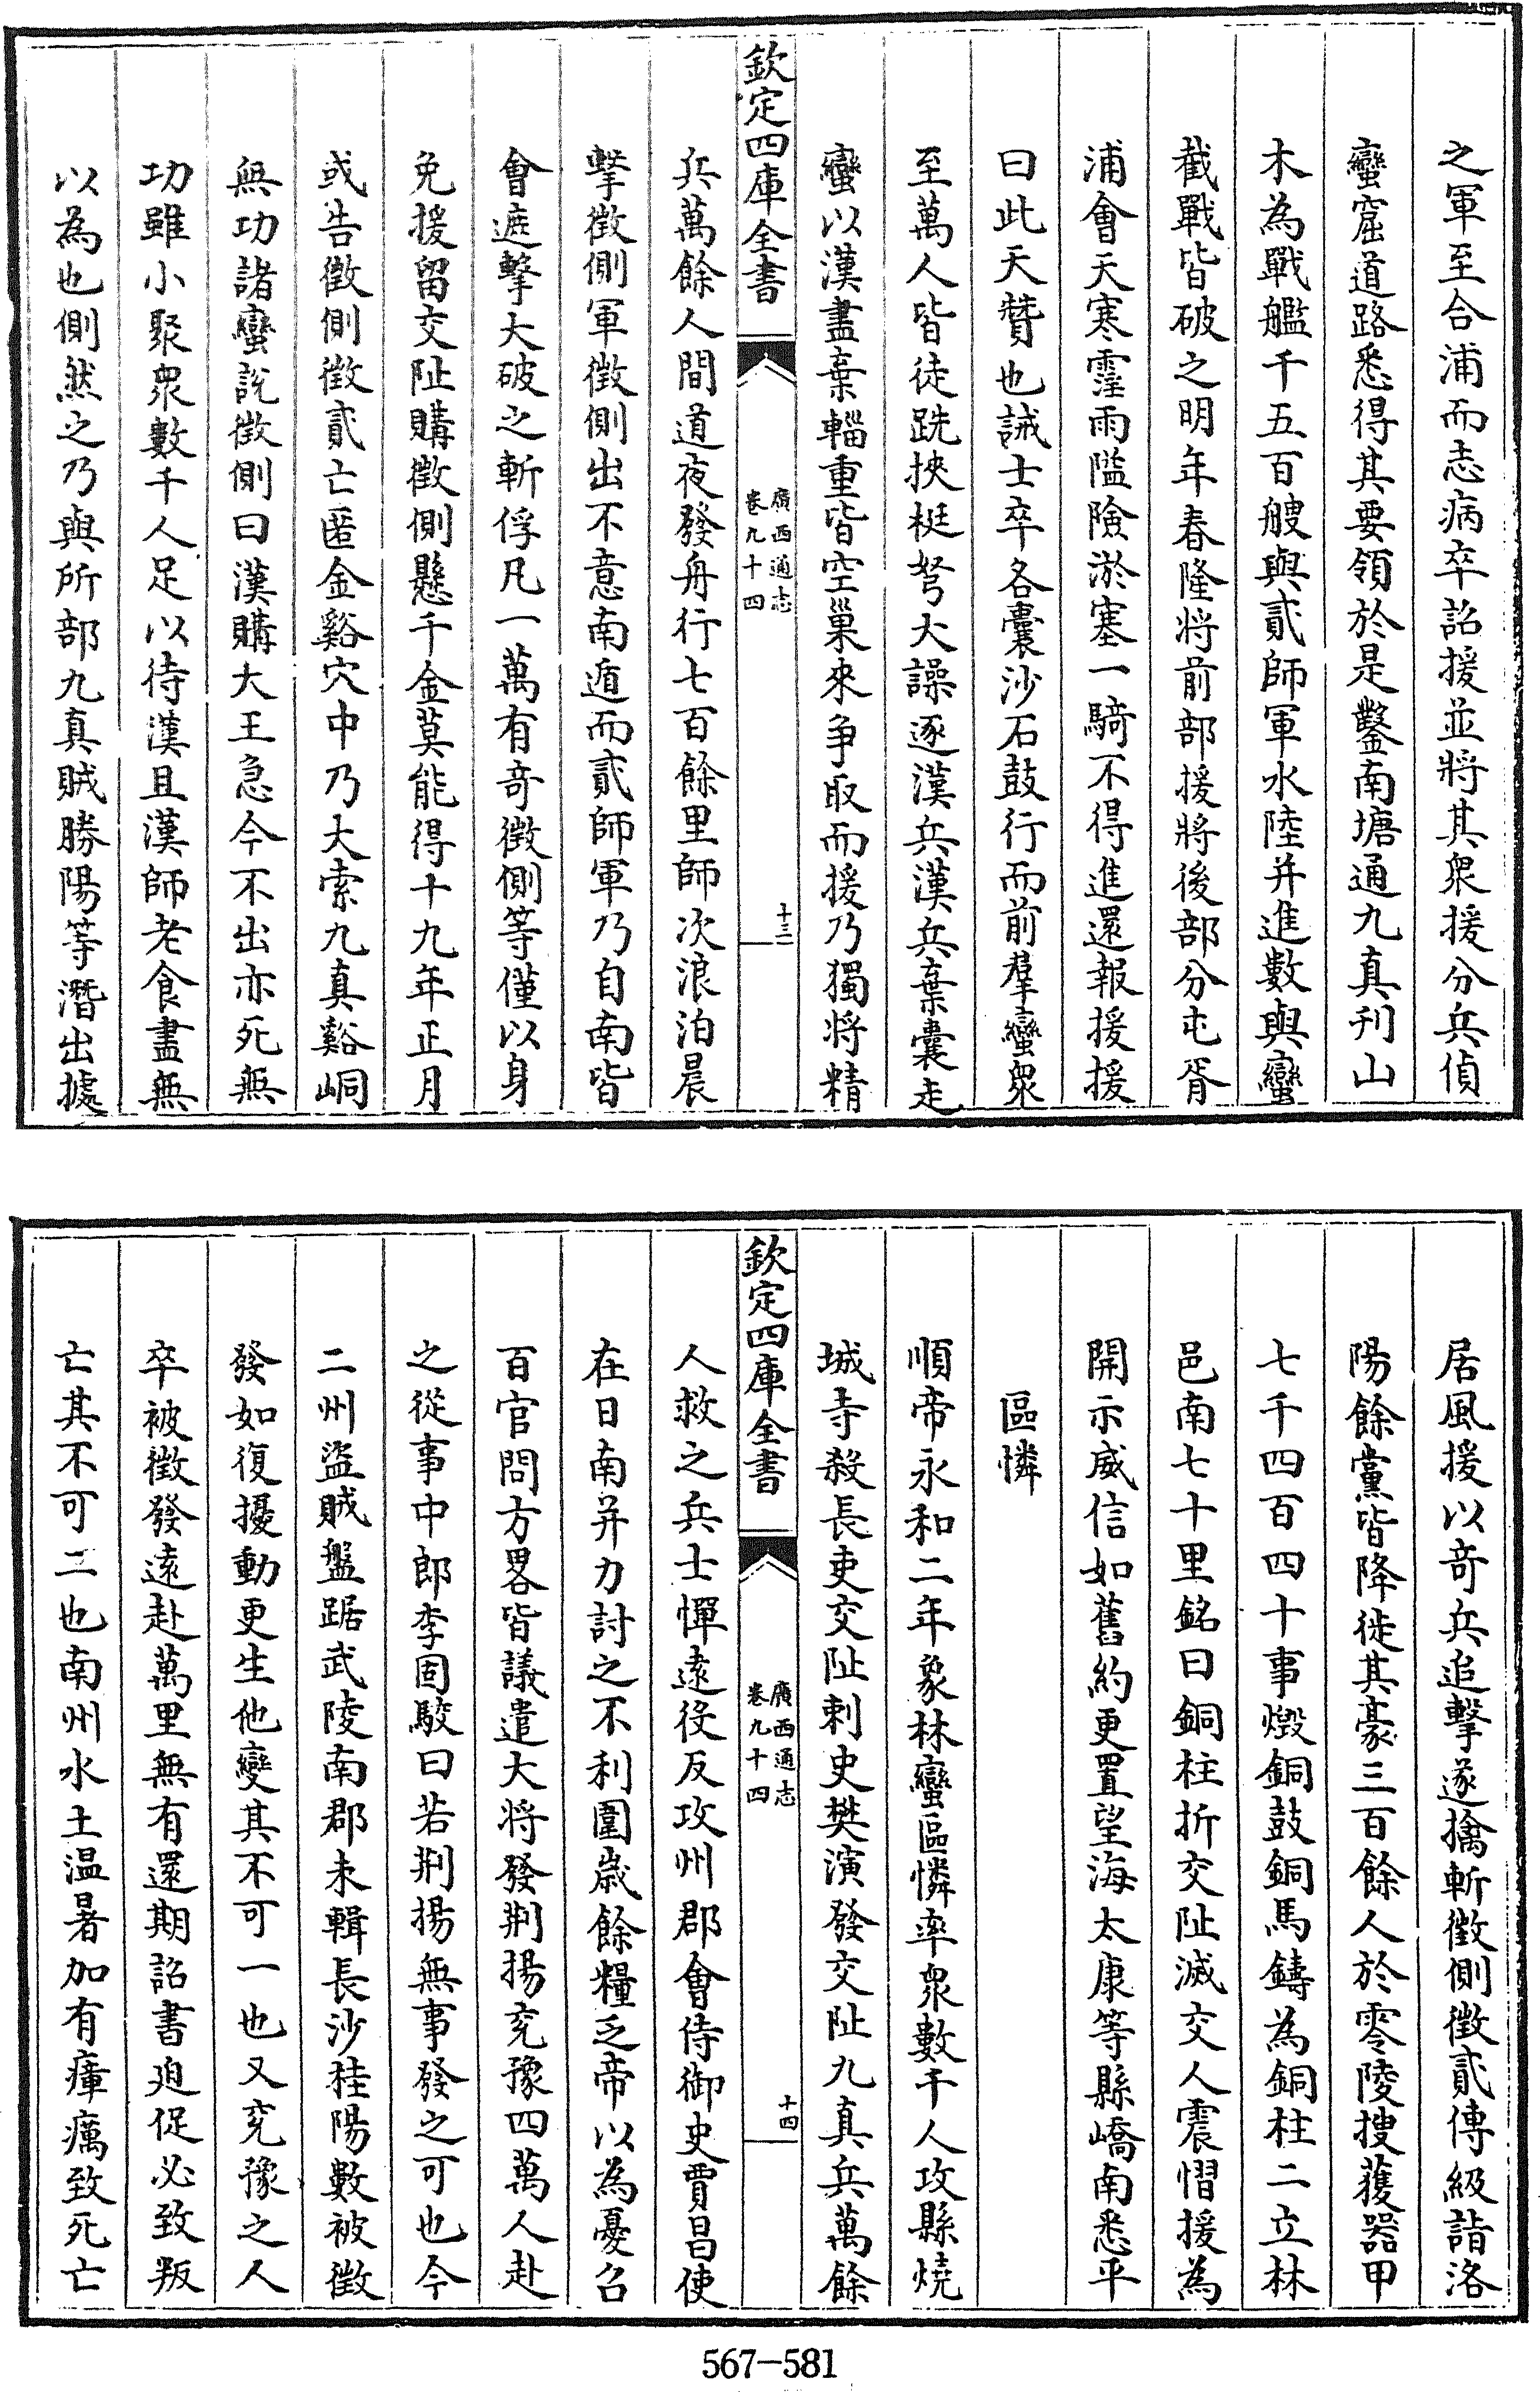 之軍至合浦而志病卒詔援並將其衆援分兵偵
蠻窟道路悉得其要領於是鑿南塘通九真刋山
木為戰艦千五百艘與貳師軍水陸并進數與蠻
截戰皆破之明年春隆將前部援將後部分屯胥
浦會天寒霪雨隘險淤塞一騎不得進還報援援
曰此天贊也誡士卒各囊沙石鼓行而前羣蠻衆
至萬人皆徒跣挾梃弩大譟逐漢兵漢兵棄囊走
蠻以漢盡棄輜重皆空巢來争取而援乃獨將精
欽定四庫全書
廣西通志
卷九十四
十三
兵萬餘人間道夜發舟行七百餘里師次浪泊晨
擊徵側軍徵側出不意南遁而貳師軍乃自南皆
會遮擊大破之斬俘凡一萬有竒徵側等僅以身
免援留交阯購徵側懸千金莫能得十九年正月
或告徵側徵貳亡匿金谿穴中乃大索九真谿峒
無功諸蠻説徵側曰漢購大王急今不出亦死無
功雖小聚衆數千人足以待漢且漢師老食盡無
以為也側然之乃與所部九真賊勝陽等潛出據
居風援以竒兵追擊遂擒斬徵側徵貳傳級詣洛
陽餘黨皆降徙其豪三百餘人於零陵搜獲器甲
七千四百四十事燬銅鼓銅馬鑄為銅柱二立林
邑南七十里銘曰銅柱折交阯滅交人震慴援為
開示威信如舊約更置望海太康等縣嶠南悉平
區憐
順帝永和二年象林蠻區憐率衆數千人攻縣燒
城寺殺長吏交阯刺史樊演發交阯九真兵萬餘
欽定四庫全書
廣西通志
卷九十四
十四
人救之兵士憚遠役反攻州郡會侍御史賈昌使
在日南并力討之不利圍歲餘糧乏帝以為憂召
百官問方畧皆議遣大將發荆揚兖豫四萬人赴
之從事中郎李固駁曰若荆揚無事發之可也今
二州盜賊盤踞武陵南郡未輯長沙桂陽數被徵
發如復擾動更生他變其不可一也又兖豫之人
卒被徵發遠赴萬里無有還期詔書廹促必致叛
亡其不可二也南州水土温暑加有瘴癘致死亡
567-581